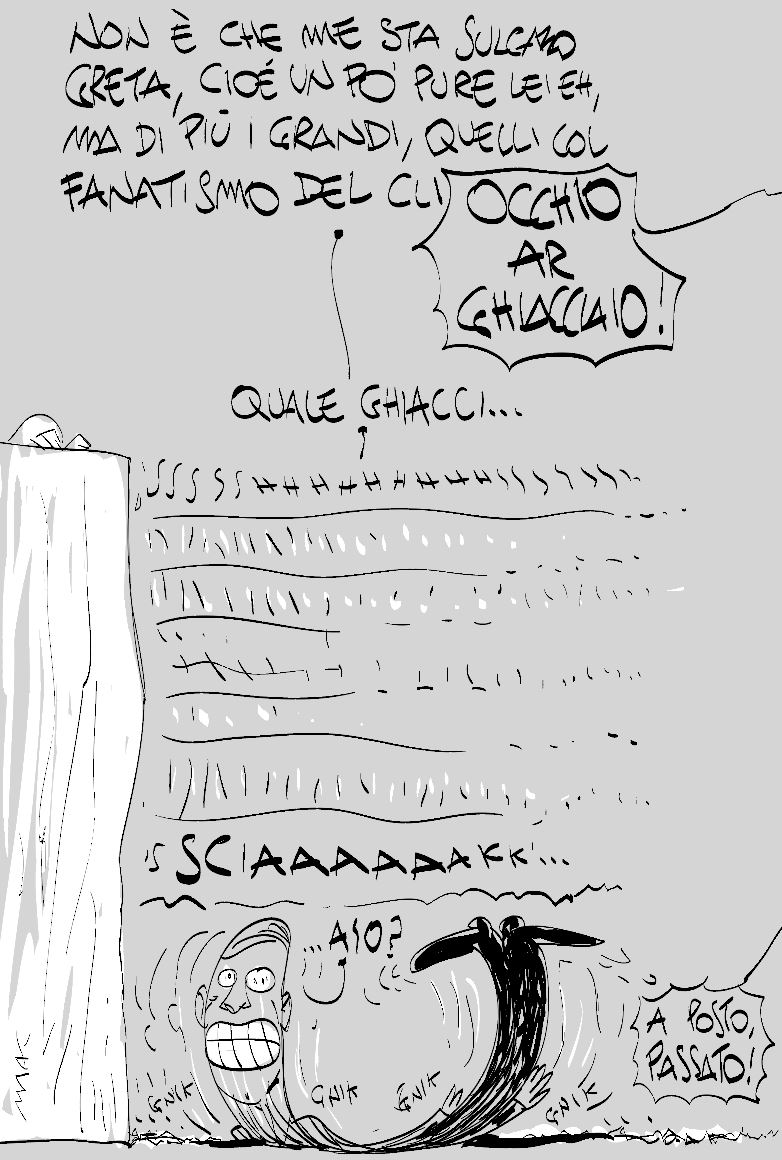 NON È CHE ME STA SULCAZO
GRETA, CIOÉ UN PO' PURE LEI EH,
MA DI PIÙ I GRANDI, QUELLI COL
FANATISMO DEL CLI
OCCHIO
AR
GHIACCIAIO!
QUALE GHIACCI...
SCIAAAAAAAKK'...
...ASO?
GNIK
GNIK
GNIK
GNIK
A POSTO,
PASSATO!
MAK